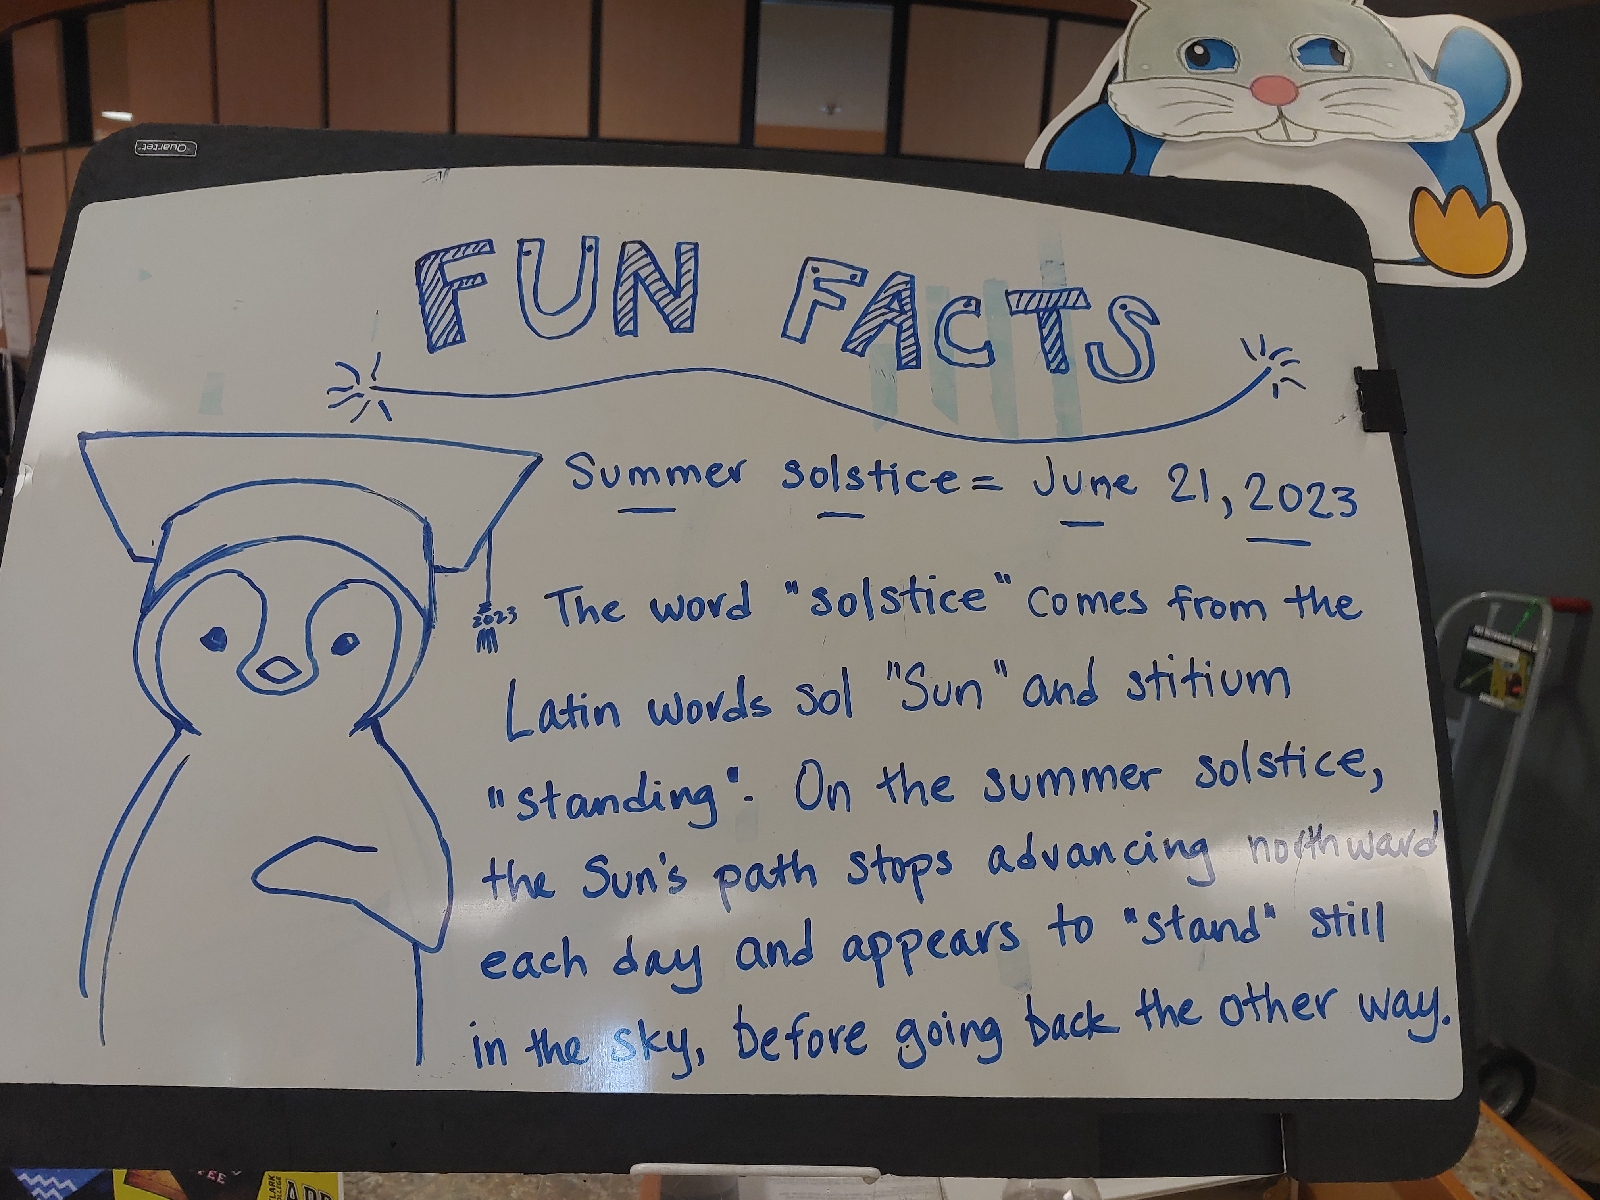 Quartet
FUN FACTS
Summer solstice = June 21, 2023
2023
The word "solstice" comes from the
Latin words sol "Sun" and stitium
"standing". On the summer solstice,
the Sun's path stops advancing northward
each day and appears to "stand" still
in the sky, before going back the other way.